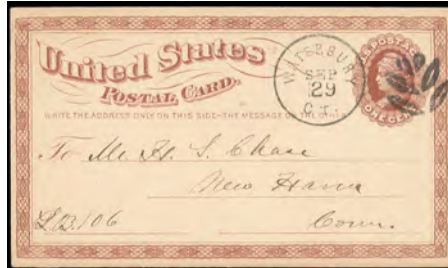 United States
POSTAL CARD.
WRITE THE ADDRESS ONLY ON THIS SIDE—THE MESSAGE ON THE OTHER
WATERBURY
SEP
29
CT.
U.S. POSTAGE
ONE CENT
To Mr. H. S. Chase
New Haven
Conn.
106